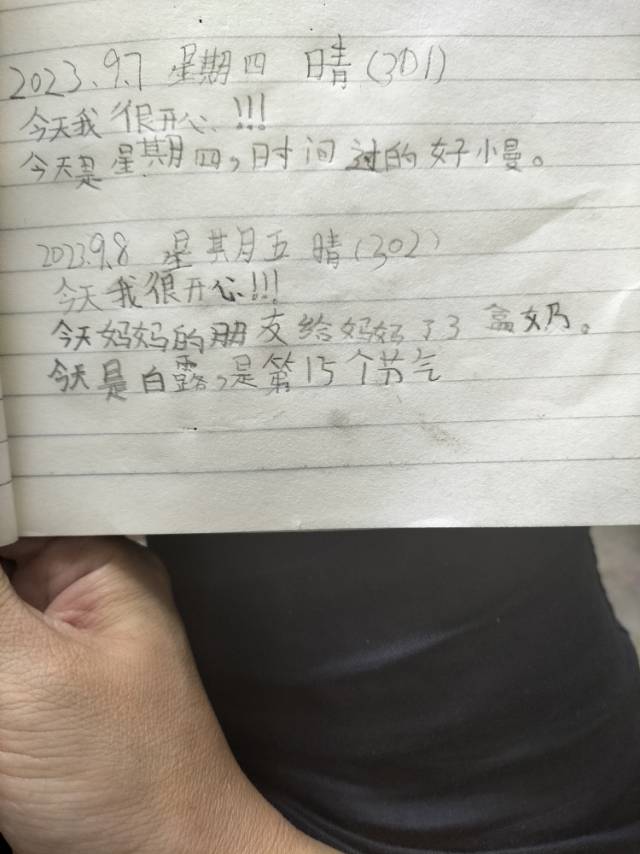 2023.9.7 星期四 晴(301)
今天我很开心!!!
今天是星期四,时间过的好小曼。
2023.9.8 星期五 晴(302)
今天我很开心!!!
今天妈妈的朋友给妈妈了3盒奶。
今天是白露,是第15个节气